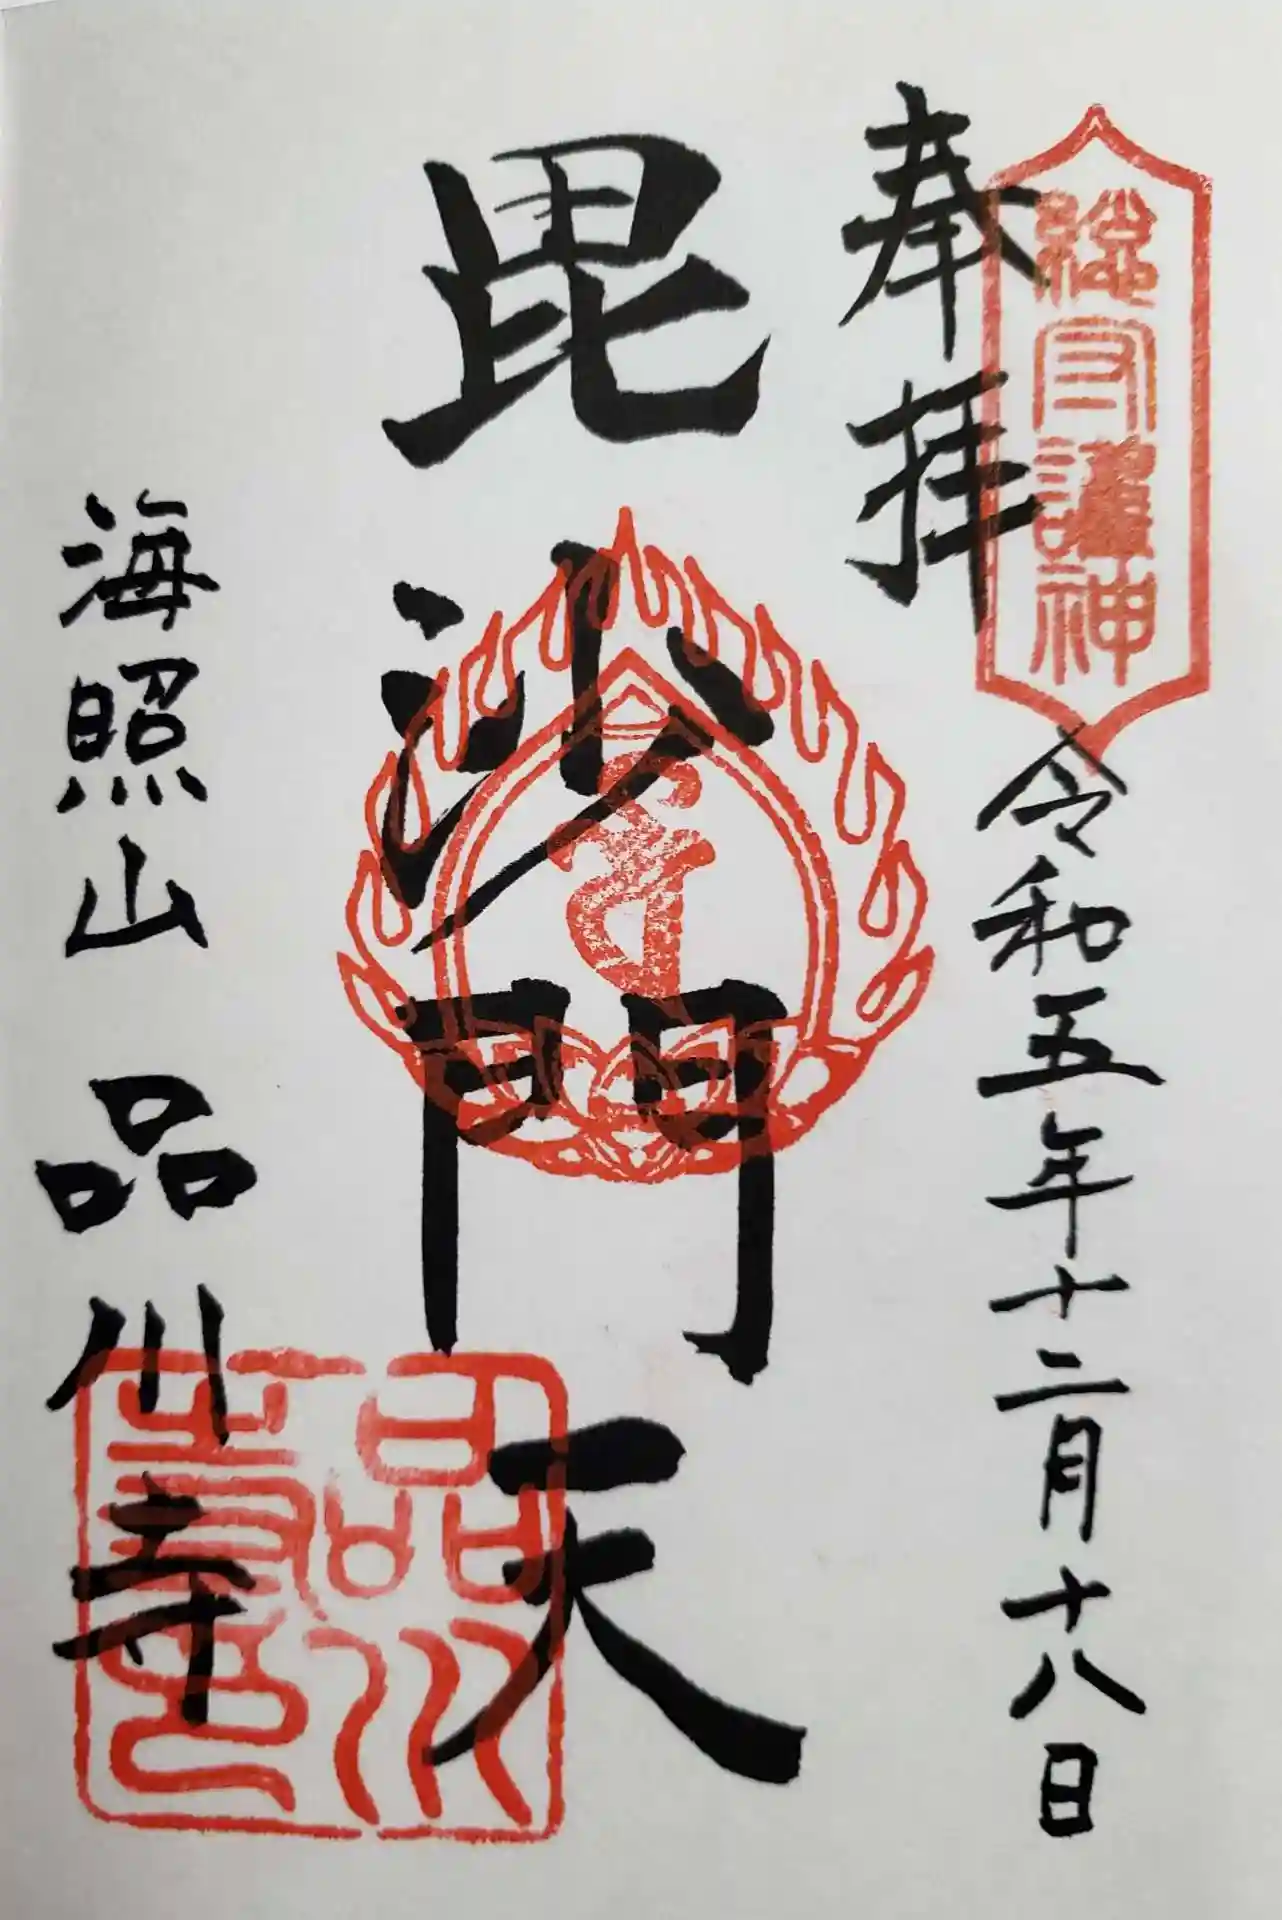 總守護神
奉拝
令和五年十二月十八日
毘沙門天
海照山 品川寺
品川寺印